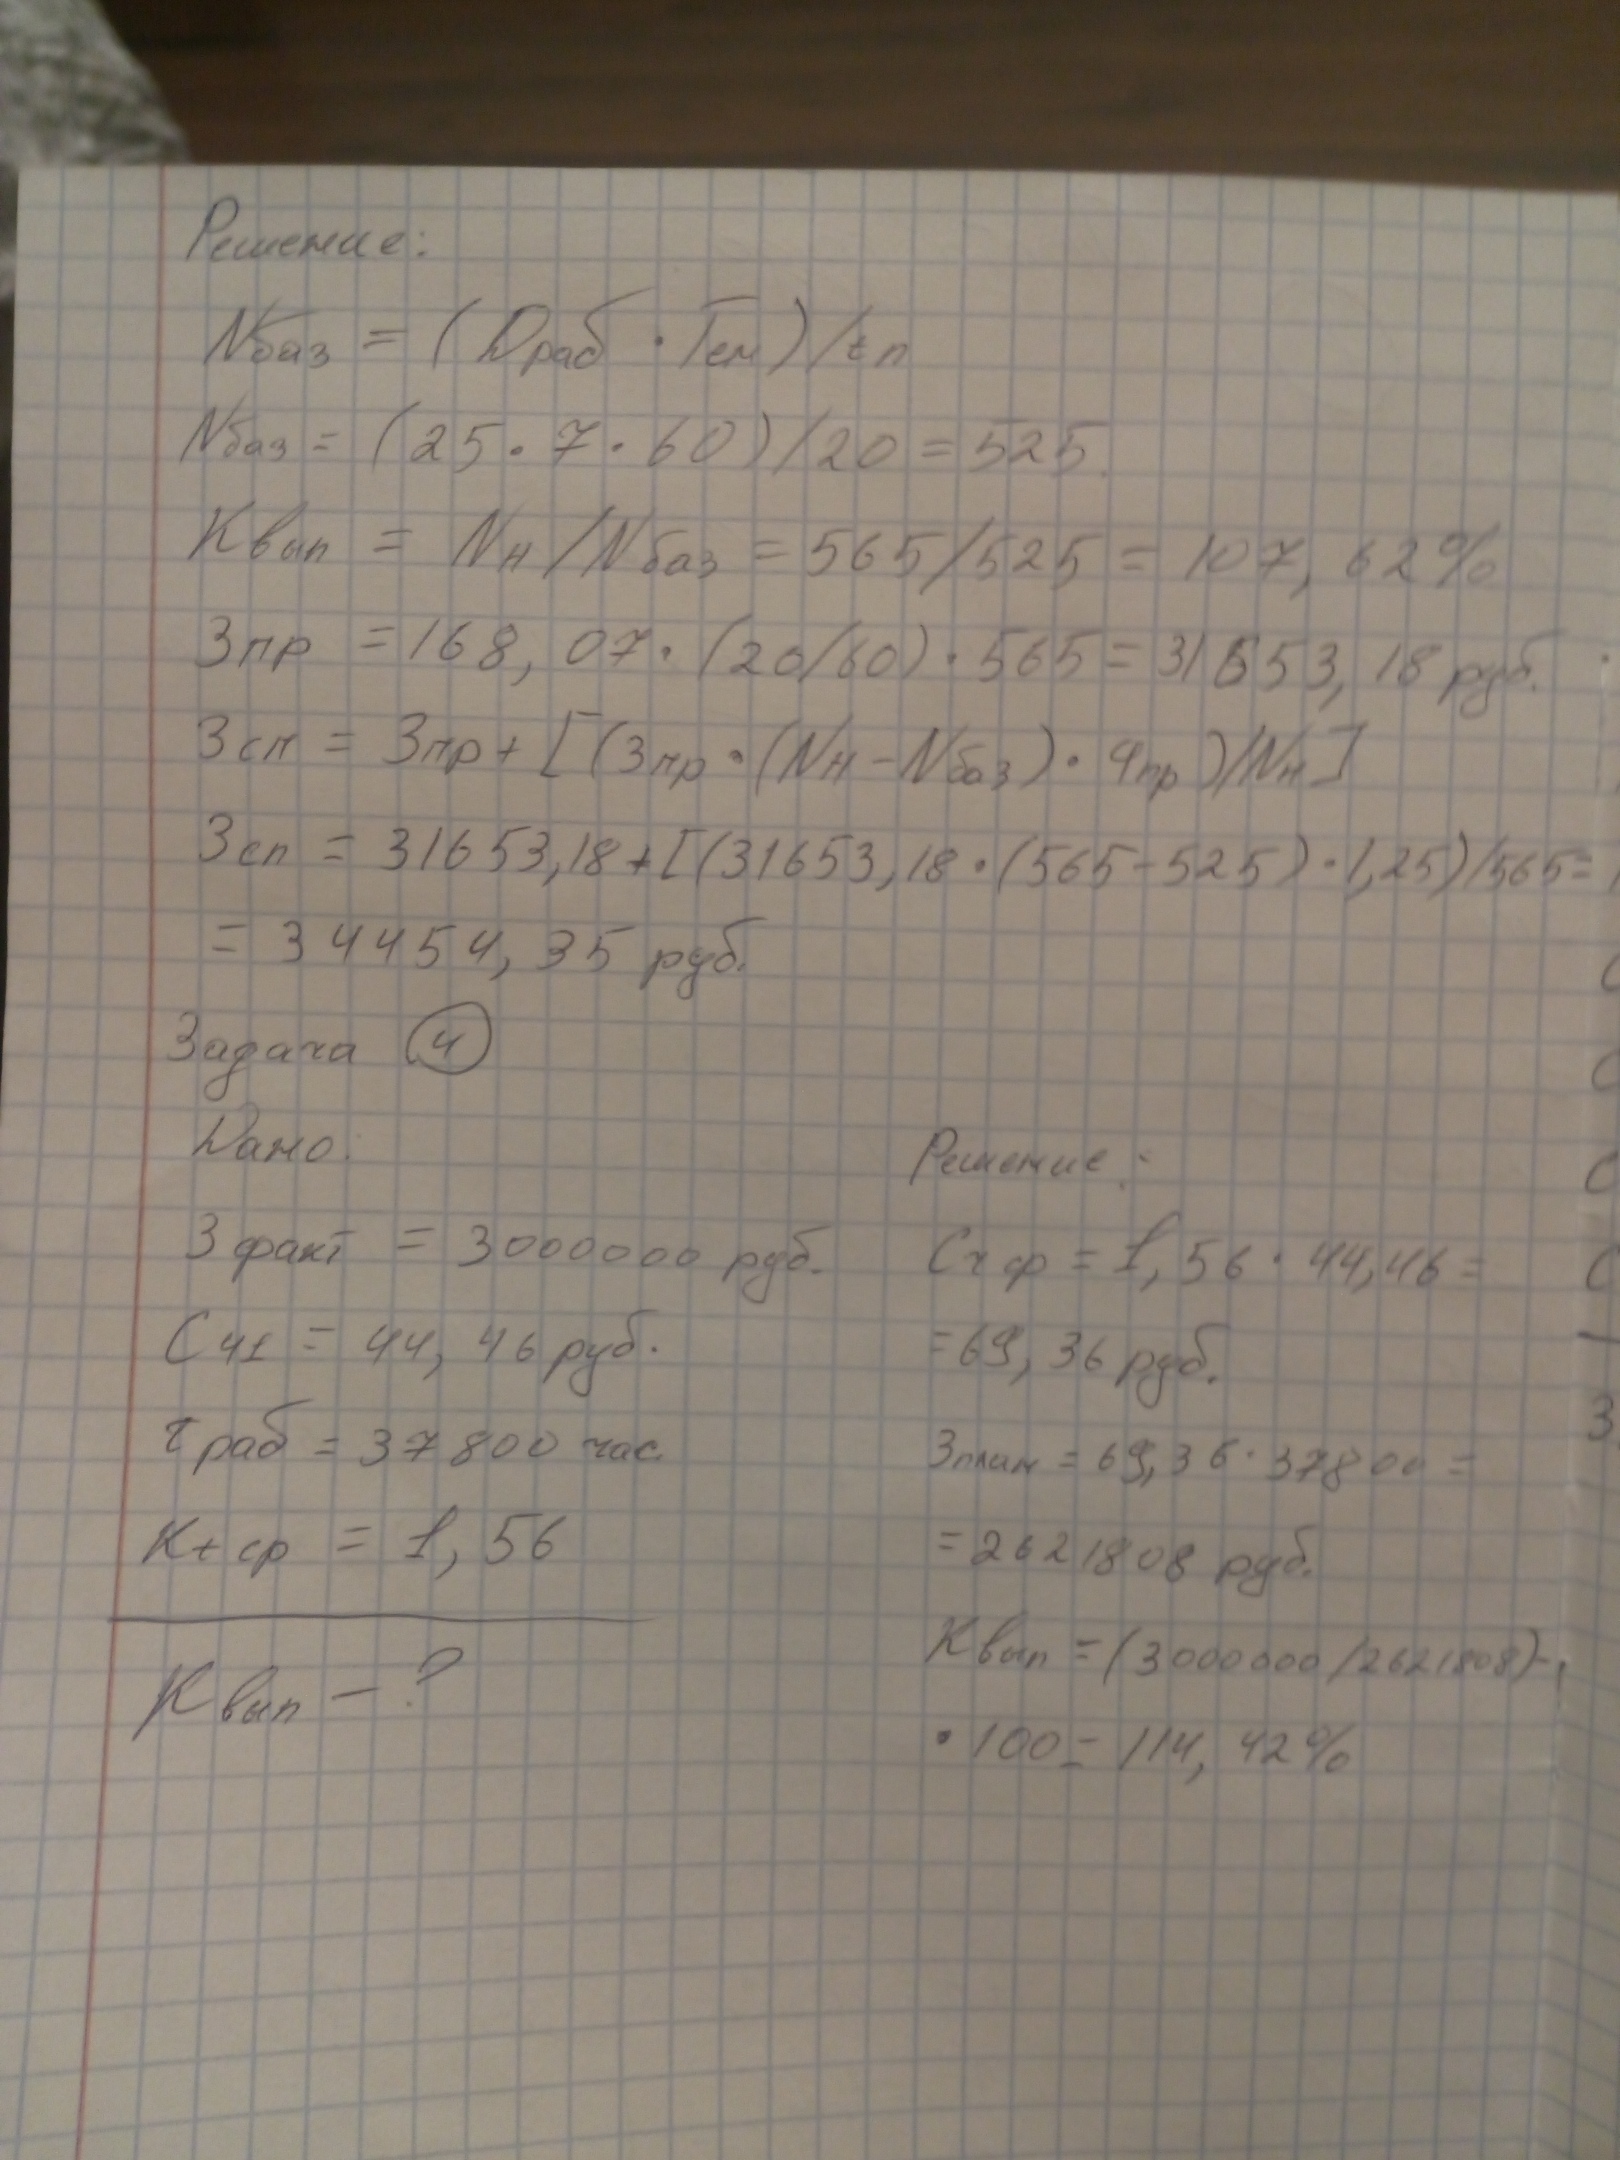 Решение:
Nбаз = (Dраб · Тсм)/tп
Nбаз = (25 · 7 · 60)/20 = 525.
Квып = Nн/Nбаз = 565/525 = 107,62%
Зпр = 168,07 · (20/60) · 565 = 31653,18 руб.
Зсп = Зпр + [(Зпр · (Nн - Nбаз) · qпр)/Nн]
Зсп = 31653,18 + [(31653,18 · (565 - 525) · 1,25)/565 =
= 34454,35 руб.
Задача 4
Дано:
Зфакт = 3000000 руб.
Сч1 = 44,46 руб.
tраб = 37800 час.
Кtср = 1,56
Квып - ?
Решение:
Сч ср = 1,56 · 44,46 =
= 69,36 руб.
Зплан = 69,36 · 37800 =
= 2621808 руб.
Квып = (3000000/2621808) ·
· 100 = 114,42%